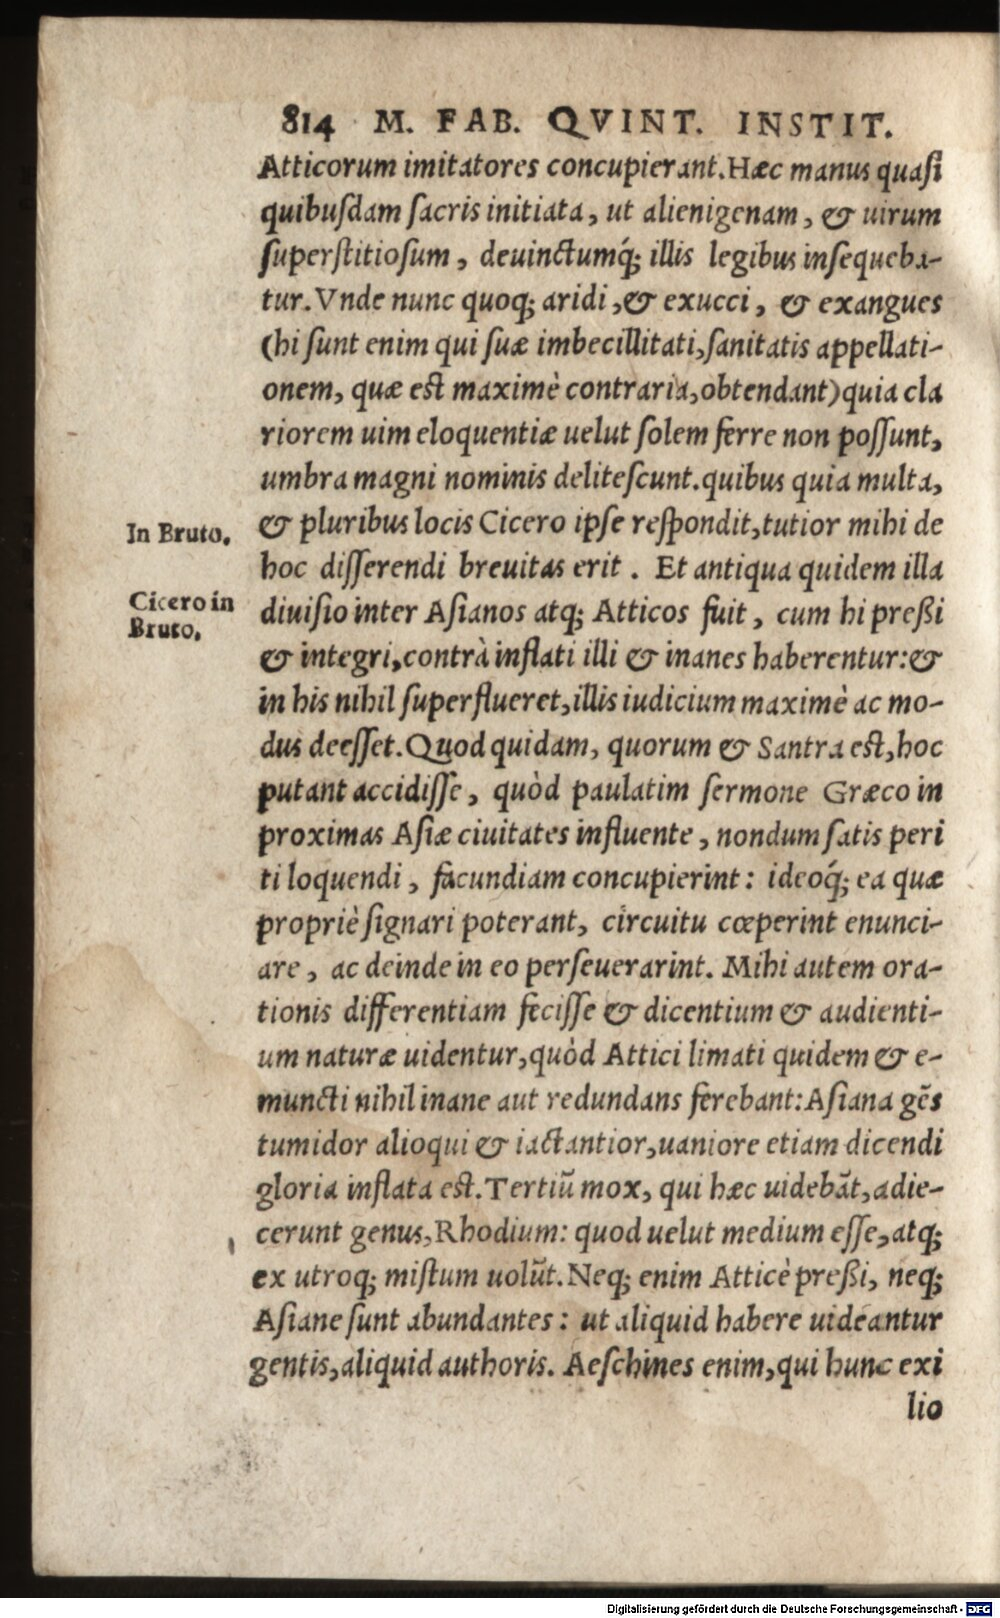 814 M. FAB. QVINT. INSTIT.
Atticorum imitatores concupierant. Hæc manus quaſi
quibuſdam ſacris initiata, ut alienigenam, & uirum
ſuperſtitioſum, deuinctumq́; illis legibus inſequeba-
tur. Vnde nunc quoq; aridi, & exucci, & exangues
(hi ſunt enim qui ſuæ imbecillitati, ſanitatis appellati-
onem, quæ eſt maximè contraria, obtendant) quia cla
riorem uim eloquentiæ uelut ſolem ferre non poſſunt,
umbra magni nominis deliteſcunt. quibus quia multa,
In Bruto.
& pluribus locis Cicero ipſe reſpondit, tutior mihi de
hoc diſſerendi breuitas erit. Et antiqua quidem illa
Cicero in
Bruto.
diuiſio inter Aſianos atq; Atticos fuit, cum hi preßi
& integri, contrà inflati illi & inanes haberentur: &
in his nihil ſuperflueret, illis iudicium maximè ac mo-
dus deeſſet. Quod quidam, quorum & Santra eſt, hoc
putant accidiſſe, quòd paulatim ſermone Græco in
proximas Aſiæ ciuitates influente, nondum ſatis peri
ti loquendi, facundiam concupierint: ideoq́; ea quæ
propriè ſignari poterant, circuitu cœperint enunci-
are, ac deinde in eo perſeuerarint. Mihi autem ora-
tionis differentiam feciſſe & dicentium & audienti-
um naturæ uidentur, quòd Attici limati quidem & e-
muncti nihil inane aut redundans ferebant: Aſiana gẽs
tumidor alioqui & iactantior, uaniore etiam dicendi
gloria inflata eſt. Tertiũ mox, qui hæc uidebãt, adie-
cerunt genus, Rhodium: quod uelut medium eſſe, atq;
ex utroq; miſtum uolũt. Neq; enim Atticè preßi, neq;
Aſiane ſunt abundantes: ut aliquid habere uideantur
gentis, aliquid authoris. Aeſchines enim, qui hunc exi
lio
Digitalisierung gefördert durch die Deutsche Forschungsgemeinschaft - DFG